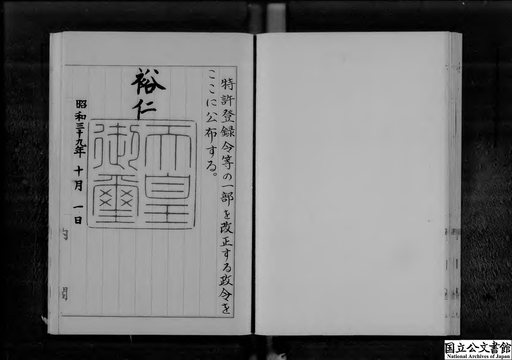 特許登録令等の一部を改正する政令を
ここに公布する。
裕仁
天皇
御璽
昭和三十九年十月一日
国立公文書館
National Archives of Japan